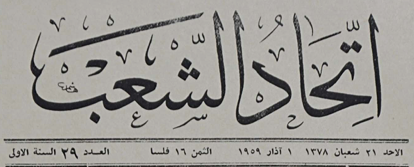 اتحاد الشعب
الاحد ٢١ شعبان ١٣٧٨ ١ آذار ١٩٥٩ الثمن ١٦ فلسا العدد ٢٩ السنة الاولى